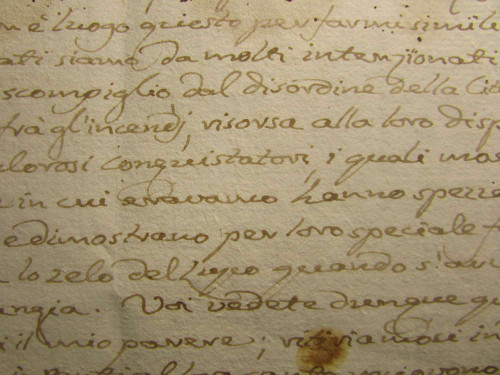 è luogo questo per farmi simile
ati siamo da molti intenzionati
scompiglio dal disordine della Cit
frà gl'incendj, risorsa alla loro disp
alorosi conquistatori, i quali mos
in cui eravamo hanno spezza
e dimostrano per loro speciale
lo zelo del quando s'avi
angia. Voi vedete dunque q
il mio parere; ritiriamoci in